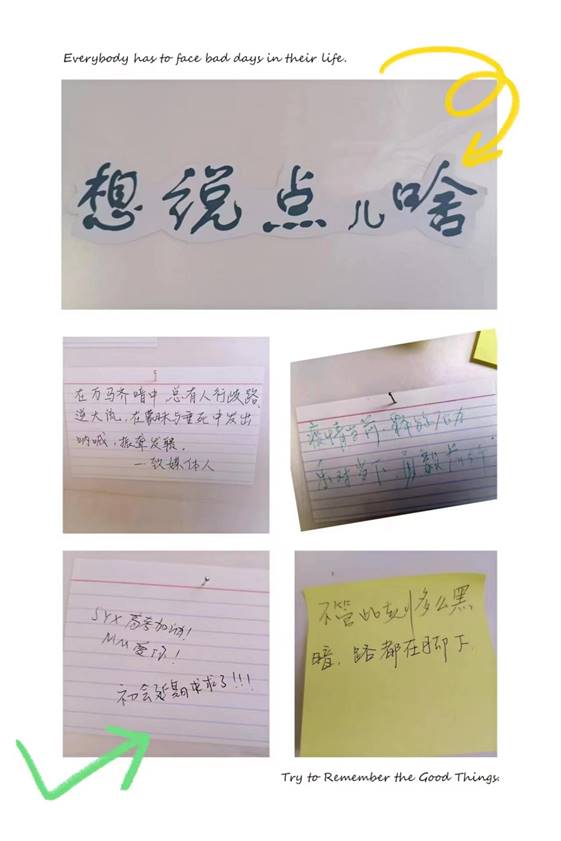 Everybody has to face bad days in their life.
想说点儿啥
在万马齐喑中 总有人行歧路
逆大流,在蒙昧与垂死中发出
呐喊,振聋发聩。
——致媒体人
疫情当前,释放压力
面对当下,勇敢
SYX高考加油!
MM爱你!
初会延期求求了!!!
不管此刻多么黑
暗,路都在脚下.
Try to Remember the Good Things.